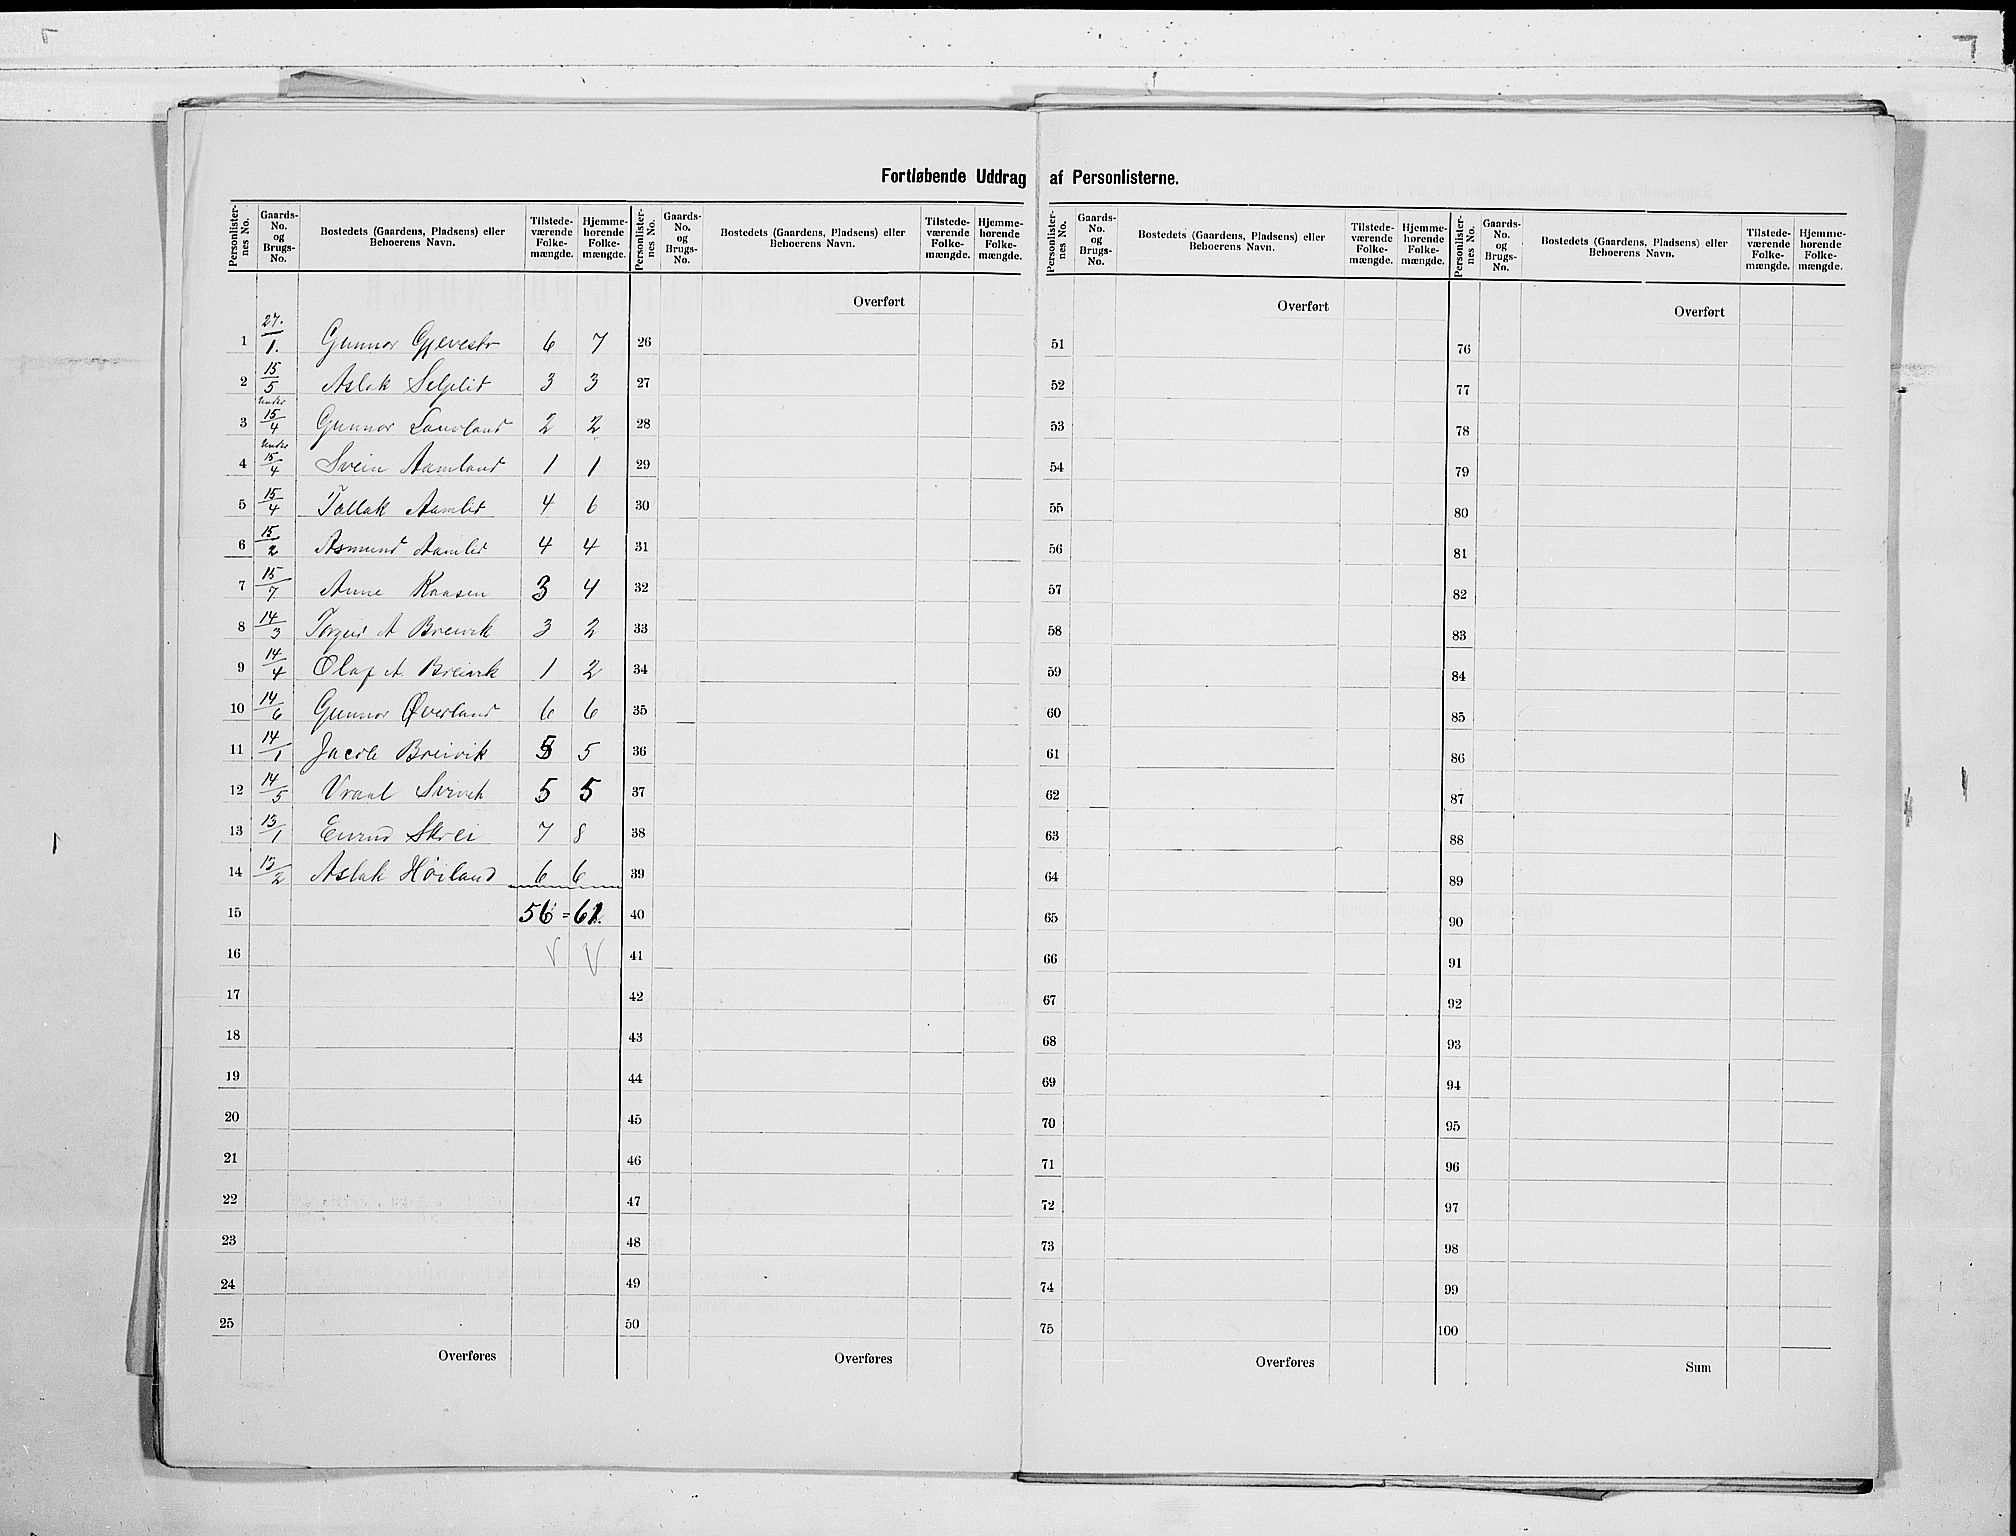 Fortløbende Uddrag af Personlisterne.
Personlisternes No. Gaards-No. og Brugs-No. Bostedets (Gaardens, Pladsens) eller Beboerens Navn. Tilstedeværende Folkemængde. Hjemmehørende Folkemængde.
Personlisternes No. Gaards-No. og Brugs-No. Bostedets (Gaardens, Pladsens) eller Beboerens Navn. Tilstedeværende Folkemængde. Hjemmehørende Folkemængde.
Personlisternes No. Gaards-No. og Brugs-No. Bostedets (Gaardens, Pladsens) eller Beboerens Navn. Tilstedeværende Folkemængde. Hjemmehørende Folkemængde.
Personlisternes No. Gaards-No. og Brugs-No. Bostedets (Gaardens, Pladsens) eller Beboerens Navn. Tilstedeværende Folkemængde. Hjemmehørende Folkemængde.
Overført Overført Overført
1 27./1. Gunnar 6 7 26 51 76
2 15/5 Aslak Seljelid 3 3 27 52 77
3 Under 15/4 Gunnar 2 2 28 53 78
4 Under 15/4 Svein Aamland 1 1 29 54 79
5 15/4 Tallak Aamlid 4 6 30 55 80
6 15/2 Asmund Aamlid 4 4 31 56 81
7 15/7 Anne Kaasen 3 4 32 57 82
8 14/3 A Breivik 3 2 33 58 83
9 14/4 Olaf A. Breivik 1 2 34 59 84
10 14/6 Gunnar Øverland 6 6 35 60 85
11 14/1 Jacob Breivik 5 5 36 61 86
12 14/5 Vraal 5 5 37 62 87
13 13/1 Skrei 7 8 38 63 88
14 13/2 Aslak Höiland 6 6 39 64 89
15 56 = 61. 40 65 90
16 V V 41 66 91
17 42 67 92
18 43 68 93
19 44 69 94
20 45 70 95
21 46 71 96
22 47 72 97
23 48 73 98
24 49 74 99
25 50 75 100
Overføres Overføres Overføres Sum